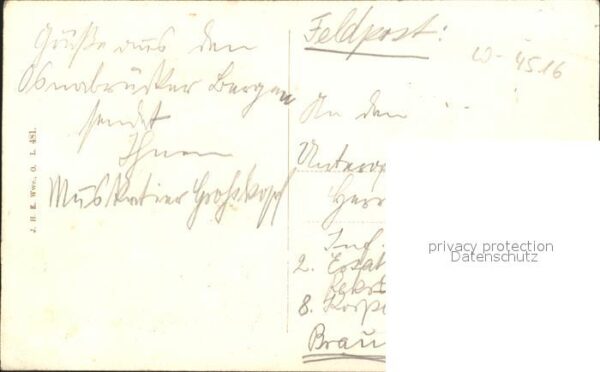 Grüße aus den
Osnabrücker Bergen
sendet
Ihnen
Musketier Großkopf
J. H. K. Wwe. O. L. 481.
Feldpost:
An den
Unterof
Herr
Inf.
2. Ersat
Rekr
8. Korp
Brau
privacy protection
Datenschutz